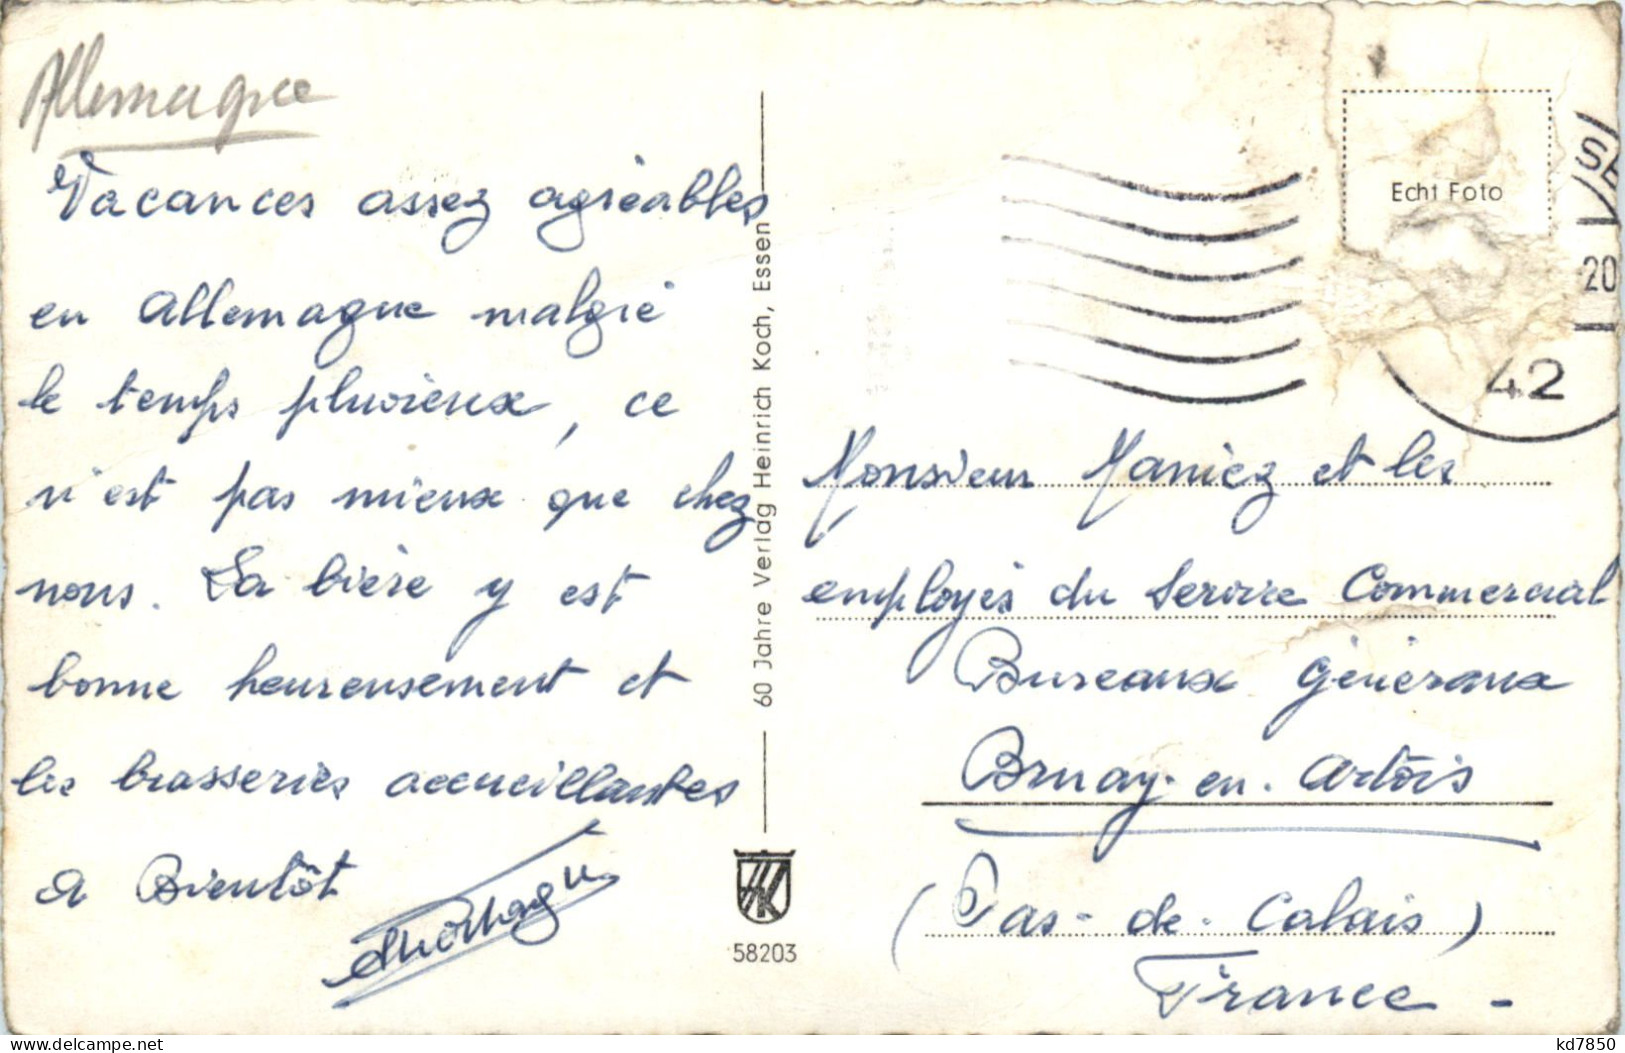 Allemagne
Vacances assez agréables
en Allemagne malgré
le temps pluvieux, ce
n'est pas mieux que chez
nous. La bière y est
bonne heureusement et
les brasseries accueillantes
A Bientôt
60 Jahre Verlag Heinrich Koch, Essen
58203
Echt Foto
SE
20
42
Monsieur Maniez et les
employés du Service Commercial
Bureaux Généraux
Bruay-en-Artois
(Pas-de-Calais)
France -
www.delcampe.net
kd7850